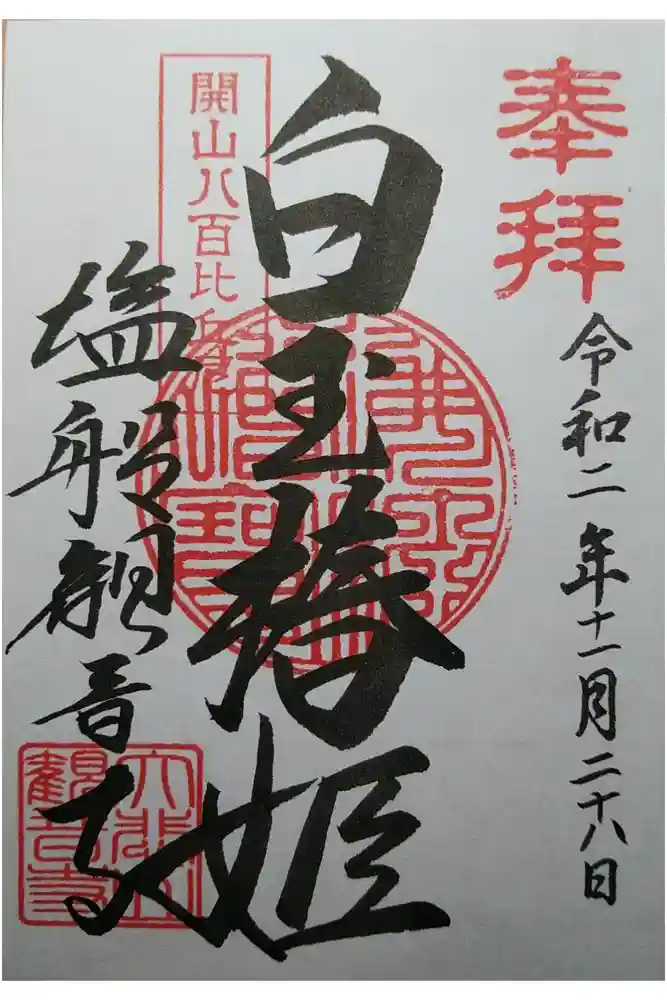 奉拝
令和二年十一月二十八日
白玉椿姫
開山八百比丘尼
塩船観音寺
大悲山
観音寺